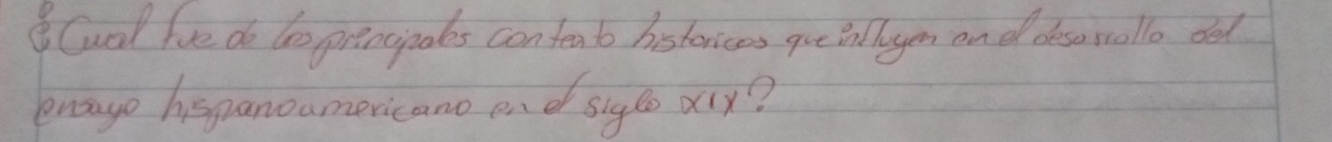 ¿Cual fue de los principales contexto historicos que influyen en el desarrollo del
ensayo hispanoamericano en el siglo XIX?